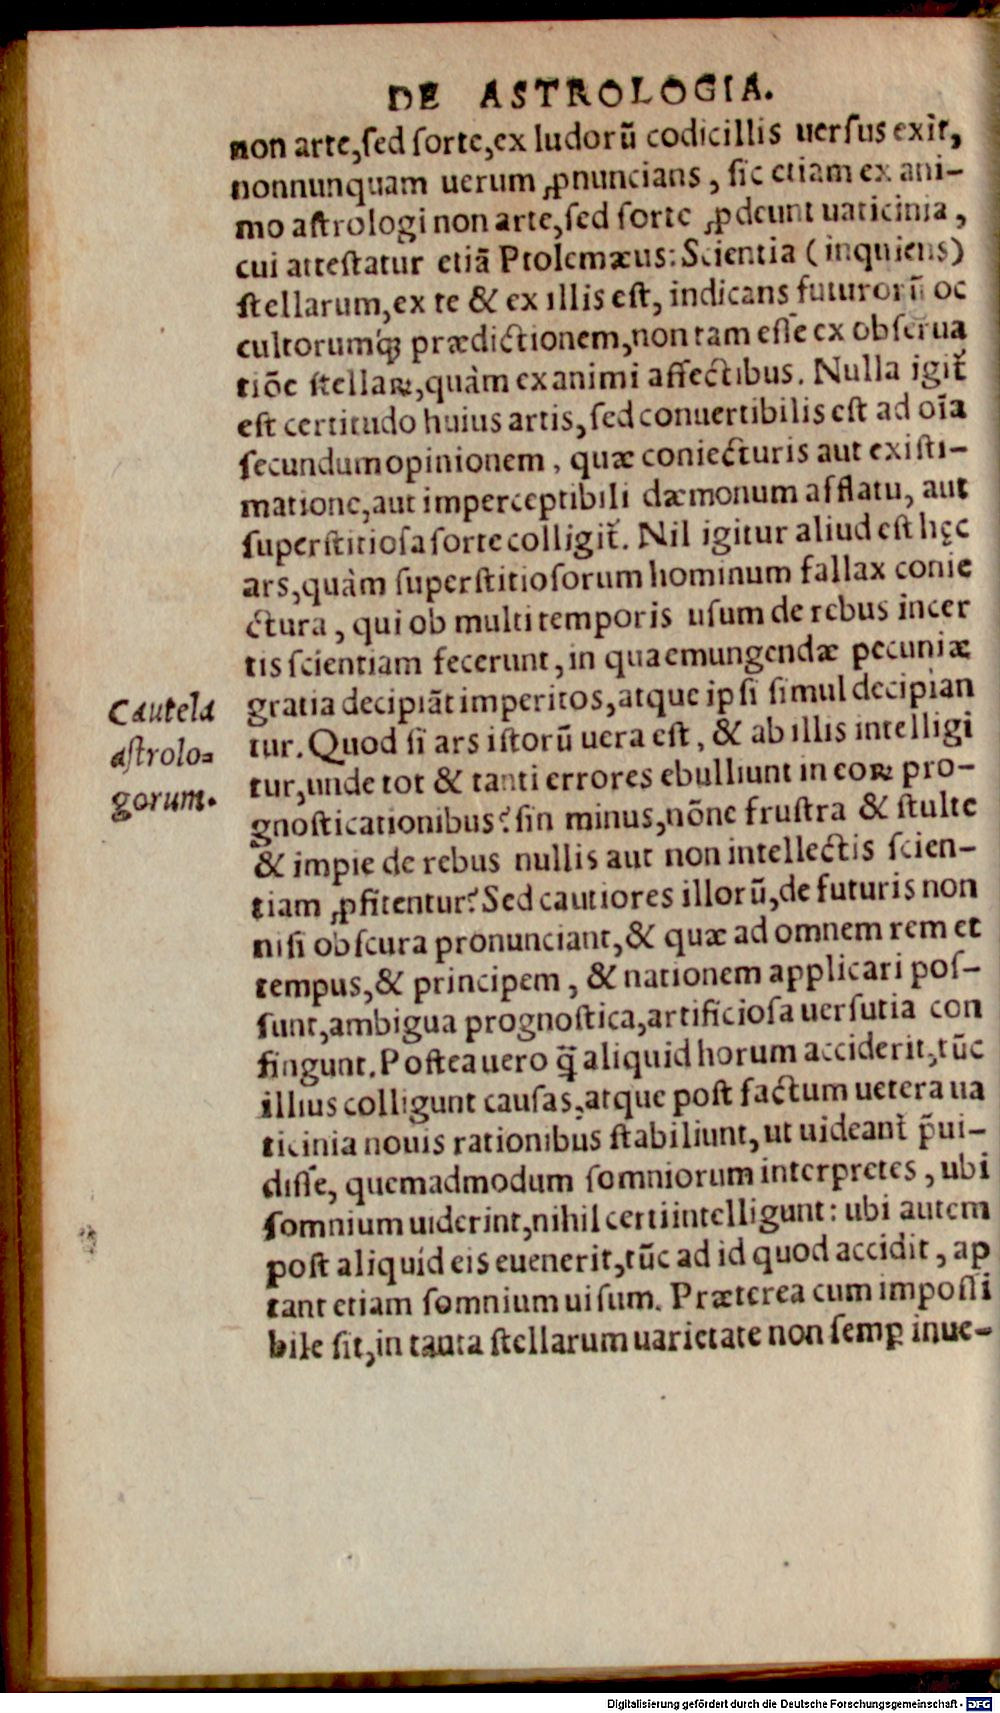 DE ASTROLOGIA.
non arte, ſed ſorte, ex ludorũ codicillis uerſus exit,
nonnunquam uerum ꝓnuncians, ſic etiam ex ani-
mo aſtrologi non arte, ſed ſorte ꝓdeunt uaticinia,
cui atteſtatur etiã Ptolemæus: Scientia (inquiens)
ſtellarum, ex te & ex illis eſt, indicans futurorũ oc
cultorumq́ꝫ prædictionem, non tam eſſe ex obſerua
tiõe ſtellaꝝ, quàm ex animi affectibus. Nulla igit̃
eſt certitudo huius artis, ſed conuertibilis eſt ad oĩa
ſecundum opinionem, quæ coniecturis aut exiſti-
matione, aut imperceptibili dæmonum afflatu, aut
ſuperſtitioſa ſorte colligit̃. Nil igitur aliud eſt hęc
ars, quàm ſuperſtitioſorum hominum fallax conie
ctura, qui ob multi temporis uſum de rebus incer
tis ſcientiam fecerunt, in qua emungendæ pecuniæ
Cautela
aſtrolo-
gorum.
gratia decipiãt imperitos, atque ipſi ſimul decipian
tur. Quod ſi ars iſtorũ uera eſt, & ab illis intelligi
tur, unde tot & tanti errores ebulliunt in eoꝝ pro-
gnoſticationibus? ſin minus, nõne fruſtra & ſtulte
& impie de rebus nullis aut non intellectis ſcien-
tiam ꝓfitentur? Sed cautiores illorũ, de futuris non
niſi obſcura pronunciant, & quæ ad omnem rem et
tempus, & principem, & nationem applicari poſ-
ſunt, ambigua prognoſtica, artificioſa uerſutia con
fingunt. Poſtea uero q̃ aliquid horum acciderit, tũc
illius colligunt cauſas, atque poſt factum uetera ua
ticinia nouis rationibus ſtabiliunt, ut uideant̃ p̃ui-
diſſe, quemadmodum ſomniorum interpretes, ubi
ſomnium uiderint, nihil certi intelligunt: ubi autem
poſt aliquid eis euenerit, tũc ad id quod accidit, ap
tant etiam ſomnium uiſum. Præterea cum impoſſi
bile ſit, in tanta ſtellarum uarietate non ſemꝑ inue-
Digitalisierung gefördert durch die Deutsche Forschungsgemeinschaft - DFG